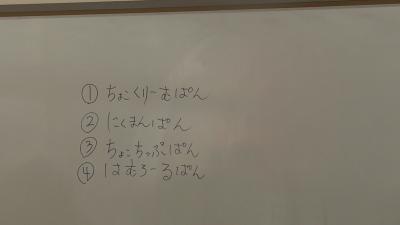 ① ちょこくりーむぱん
② にくまんぱん
③ ちょこちっぷぱん
④ はむろーるぱん